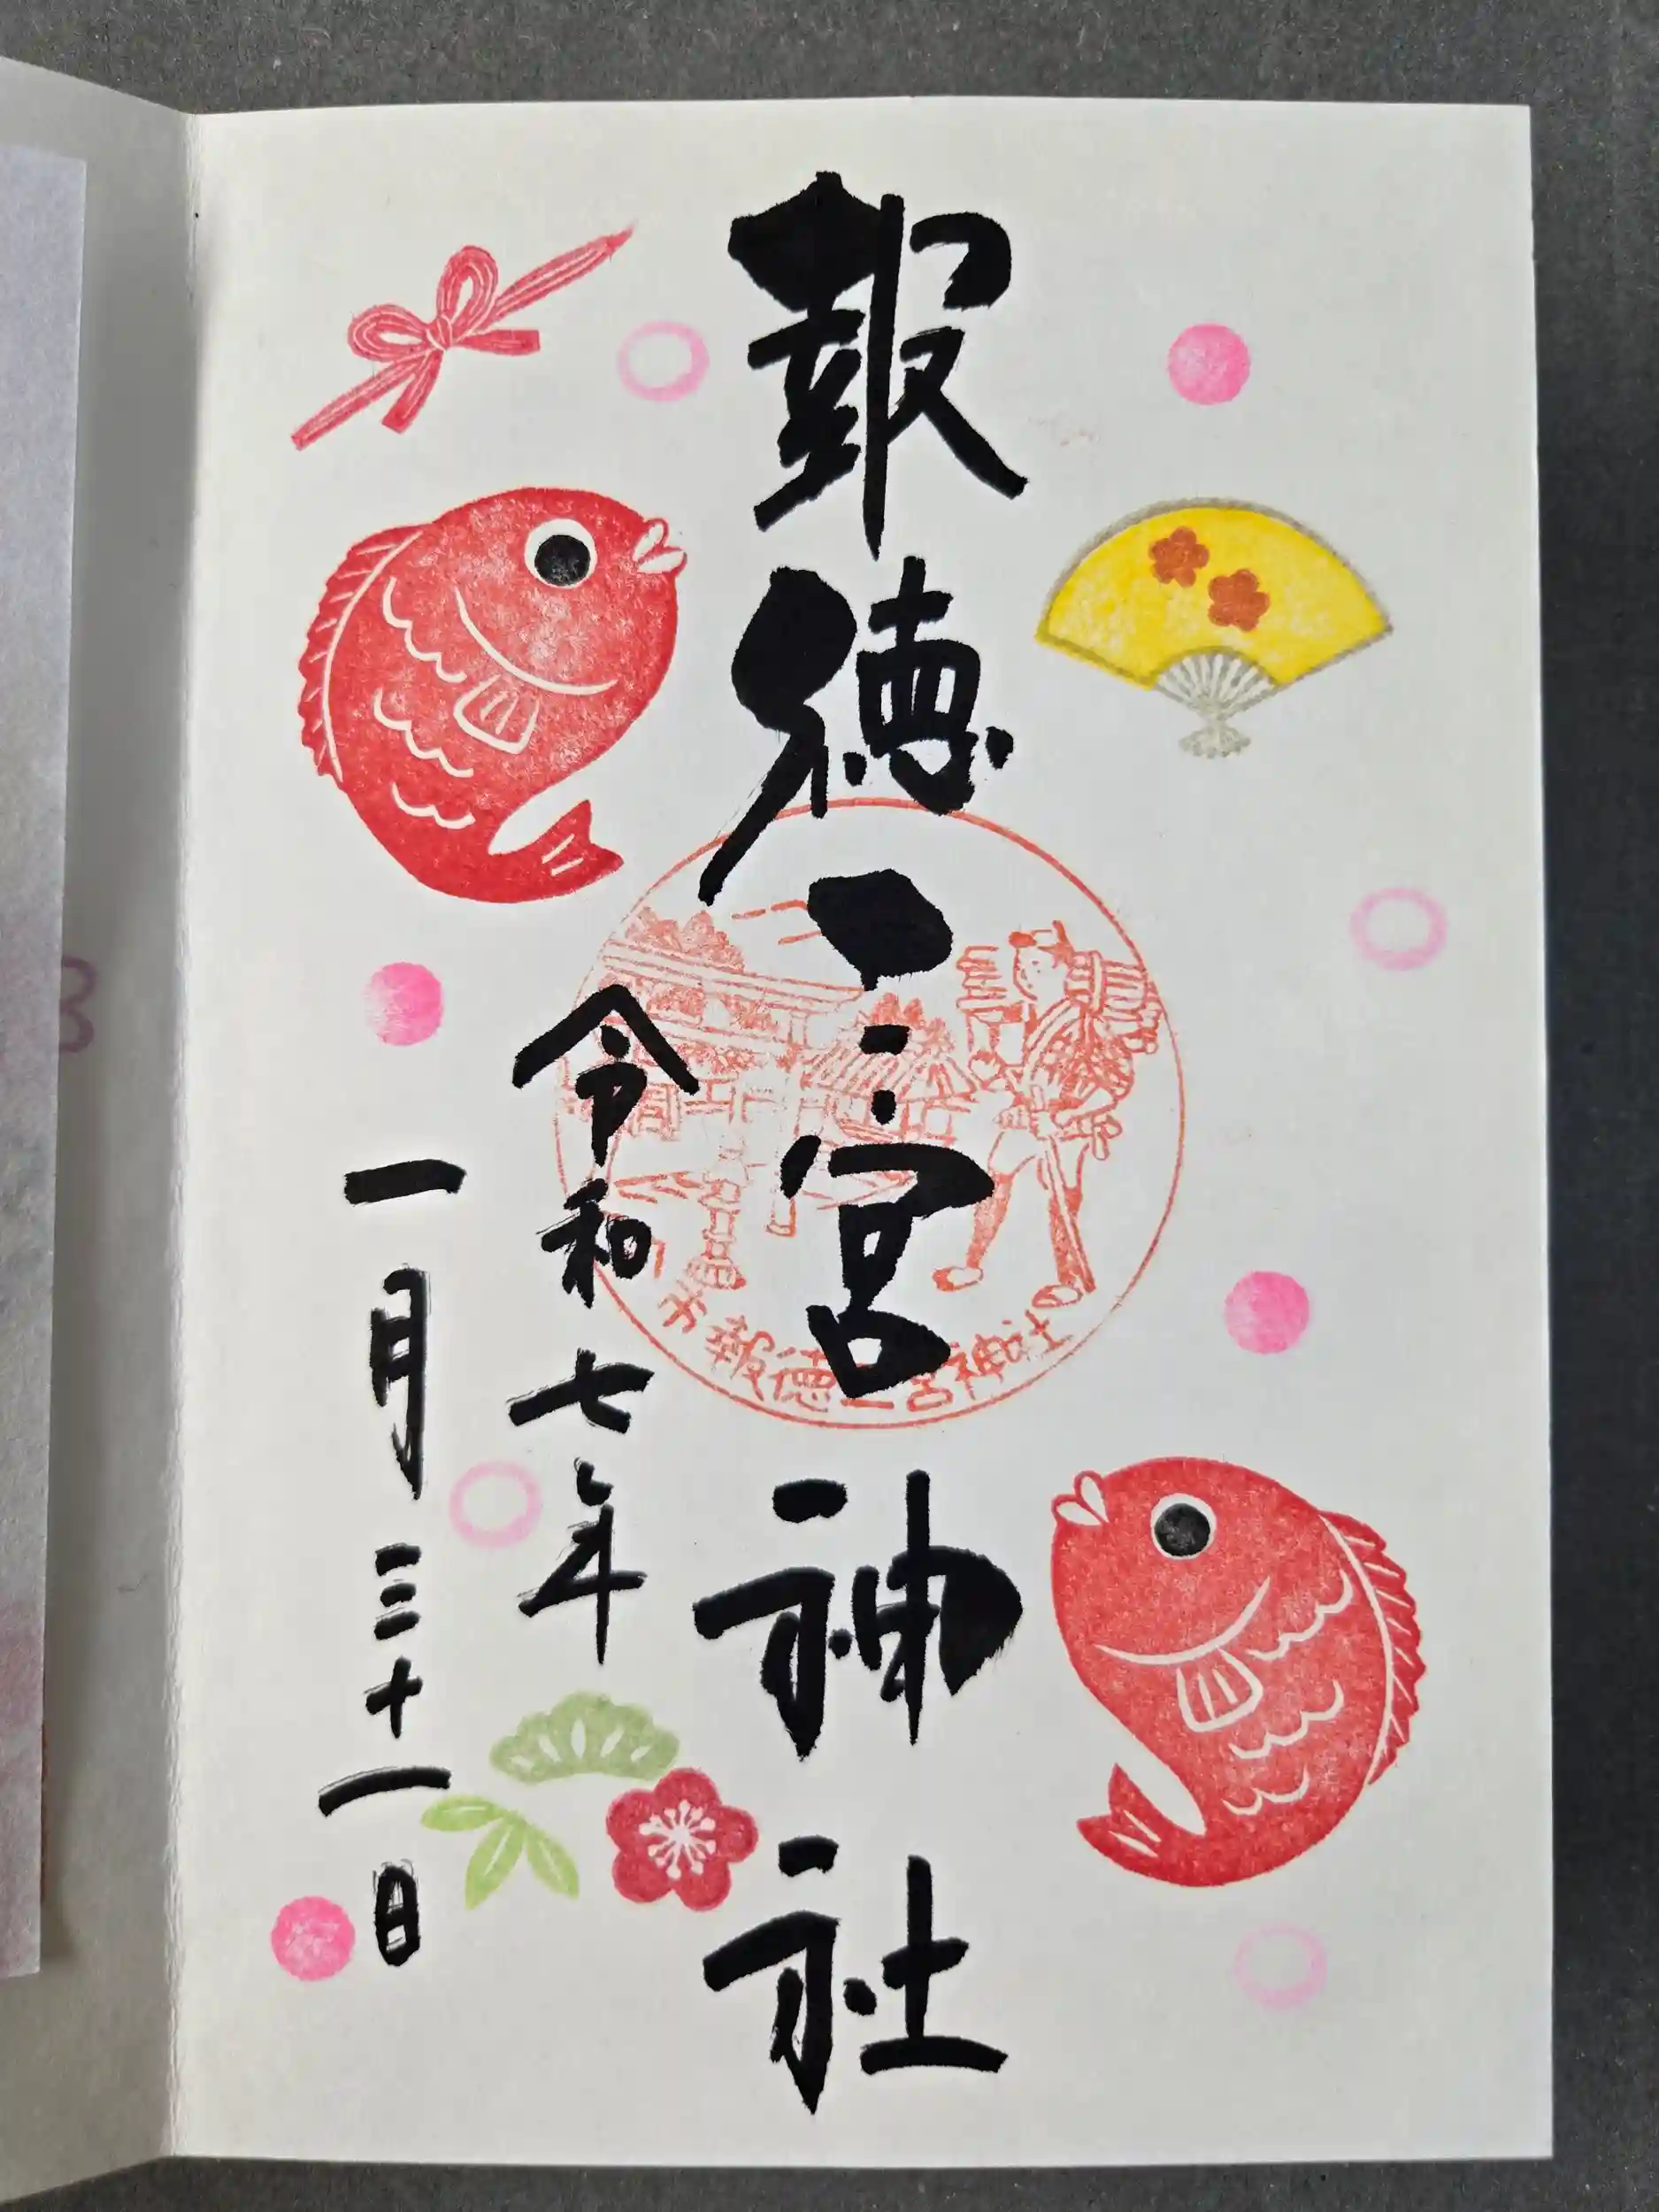 報徳二宮神社
市報徳二宮神社
令和七年
一月三十一日